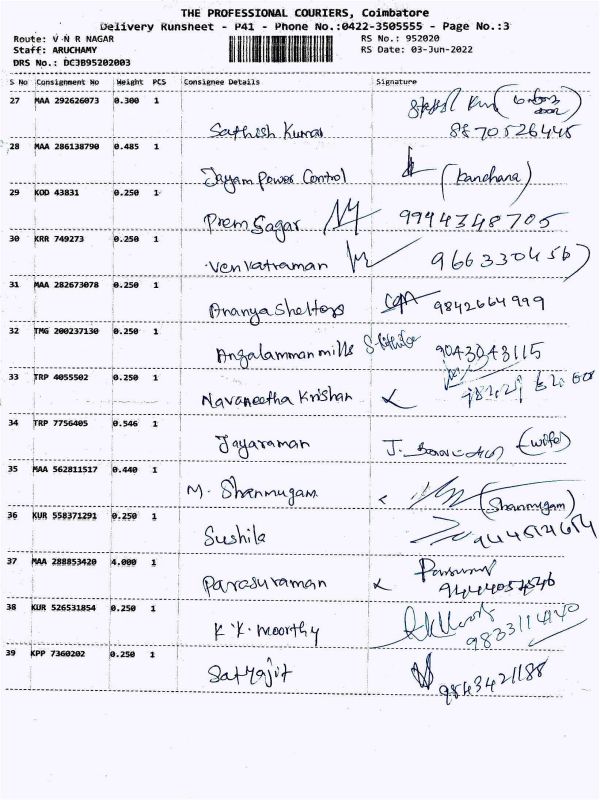 THE PROFESSIONAL COURIERS, Coimbatore
Delivery Runsheet - P41 - Phone No.:0422-3505555 - Page No.:3
Route: V N R NAGAR RS No.: 952020
Staff: ARUCHAMY RS Date: 03-Jun-2022
DRS No.: DCJB95202003
S No Consignment No Weight PCS Consignee Details Signature
27 MAA 292626073 0.300 1
Sathish Kumar 8870526445
28 MAA 286138790 0.485 1
Jayam Power Control (Kanchana)
29 KOD 43831 0.250 1
Prem Sagar 9994348705
30 KRR 749273 0.250 1
Venkatraman 966330456
31 MAA 282673078 0.250 1
Ananya Shelters 9842664999
32 TMG 200237130 0.250 1
Angalamman mills 9043043115
33 TRP 4055502 0.250 1
Navaneetha Krishan
34 TRP 7756405 0.546 1
Jayaraman J. (wife)
35 MAA 562811517 0.440 1
M. Shanmugam (Shanmugam)
36 KUR 558371291 0.250 1
Sushila
37 MAA 288853420 4.000 1
Parasuraman
38 KUR 526531854 0.250 1
K.K. Moorthy 9833114140
39 KPP 7360202 0.250 1
Satyajit 9843421188